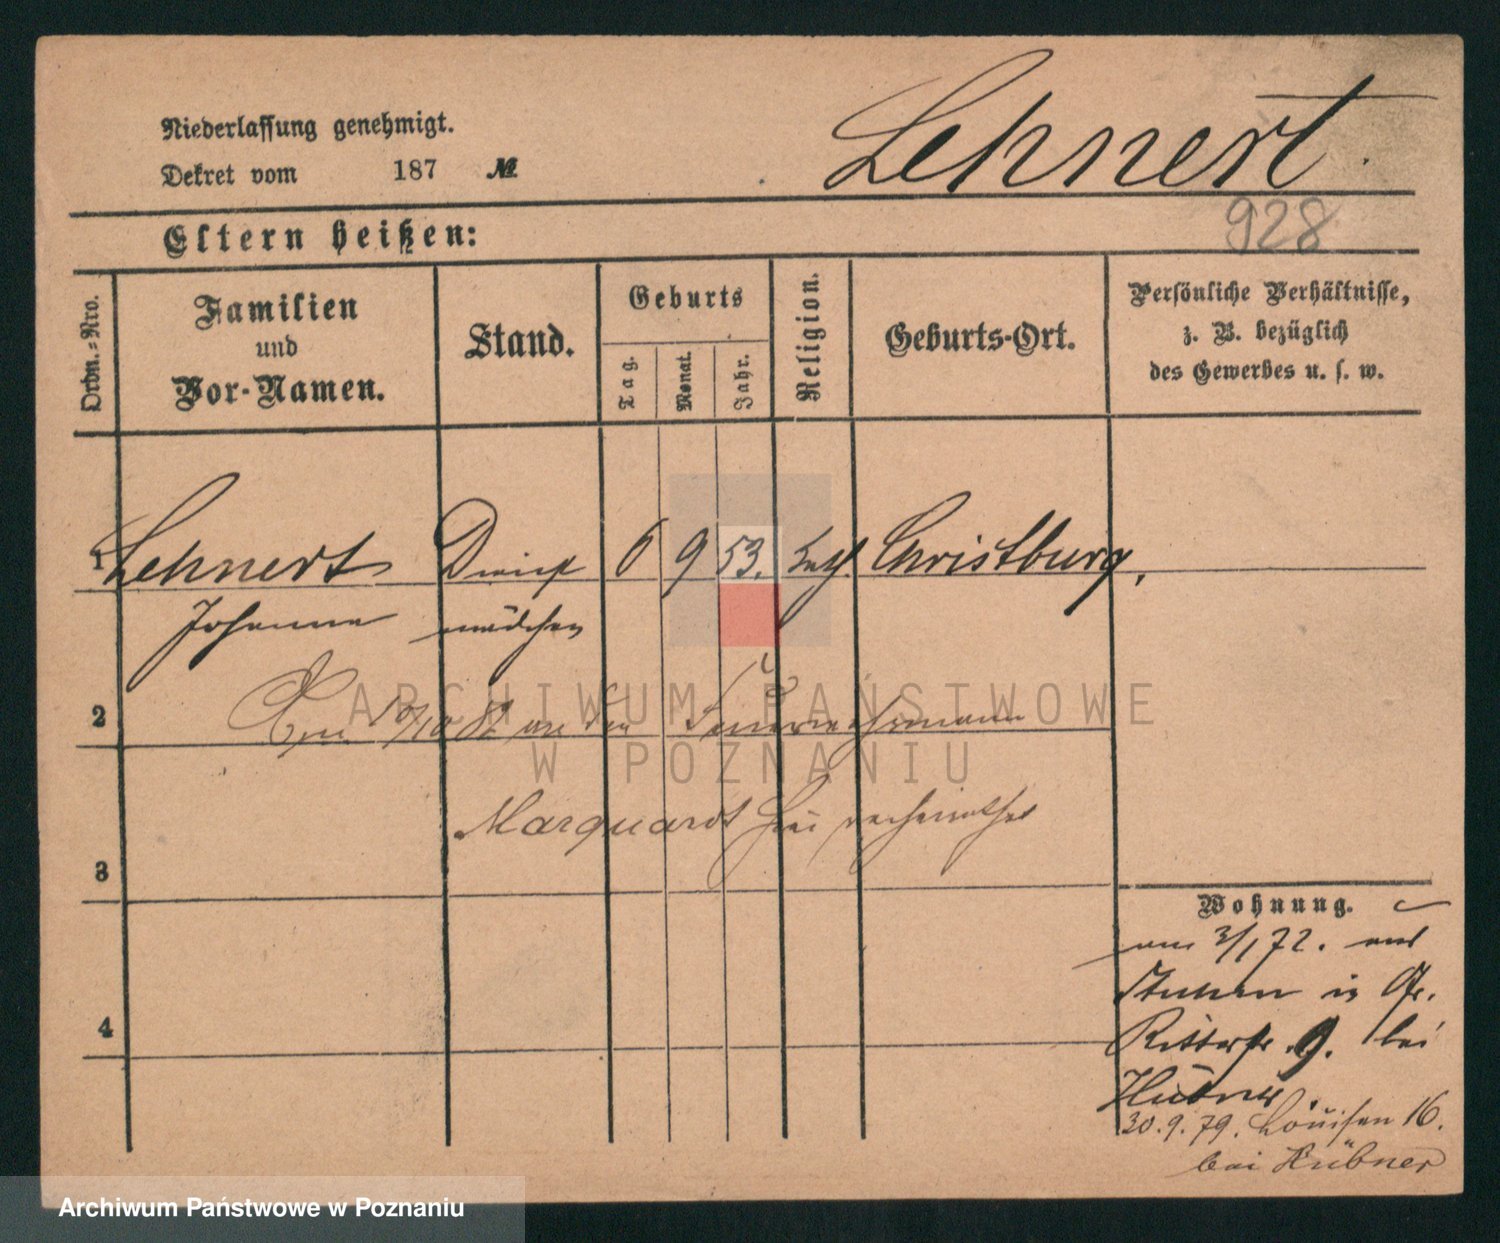 Lehnert.
Niederlassung genehmigt.
Dekret vom 187 №
928
Eltern heißen:
Ordn.=Nro.
Familien
und
Vor-Namen.
Stand.
Geburts
Tag.
Monat.
Jahr.
Religion.
Geburts-Ort.
Persönliche Verhältnisse,
z. B. bezüglich
des Gewerbes u. s. w.
1 Lehnert Dienst 6 9 53. kath. Christburg,
Johanna mädchen
2
10/10 82 an den Feuerwehrmann
Marquardt hier verheirathet
3
4
Wohnung.
am 3/1 72. aus
Stuhm in Gr.
Ritterstr. 9. bei
Hübner.
30.9.79. Louisen 16.
bei Hübner
ARCHIWUM PAŃSTWOWE
W POZNANIU
Archiwum Państwowe w Poznaniu